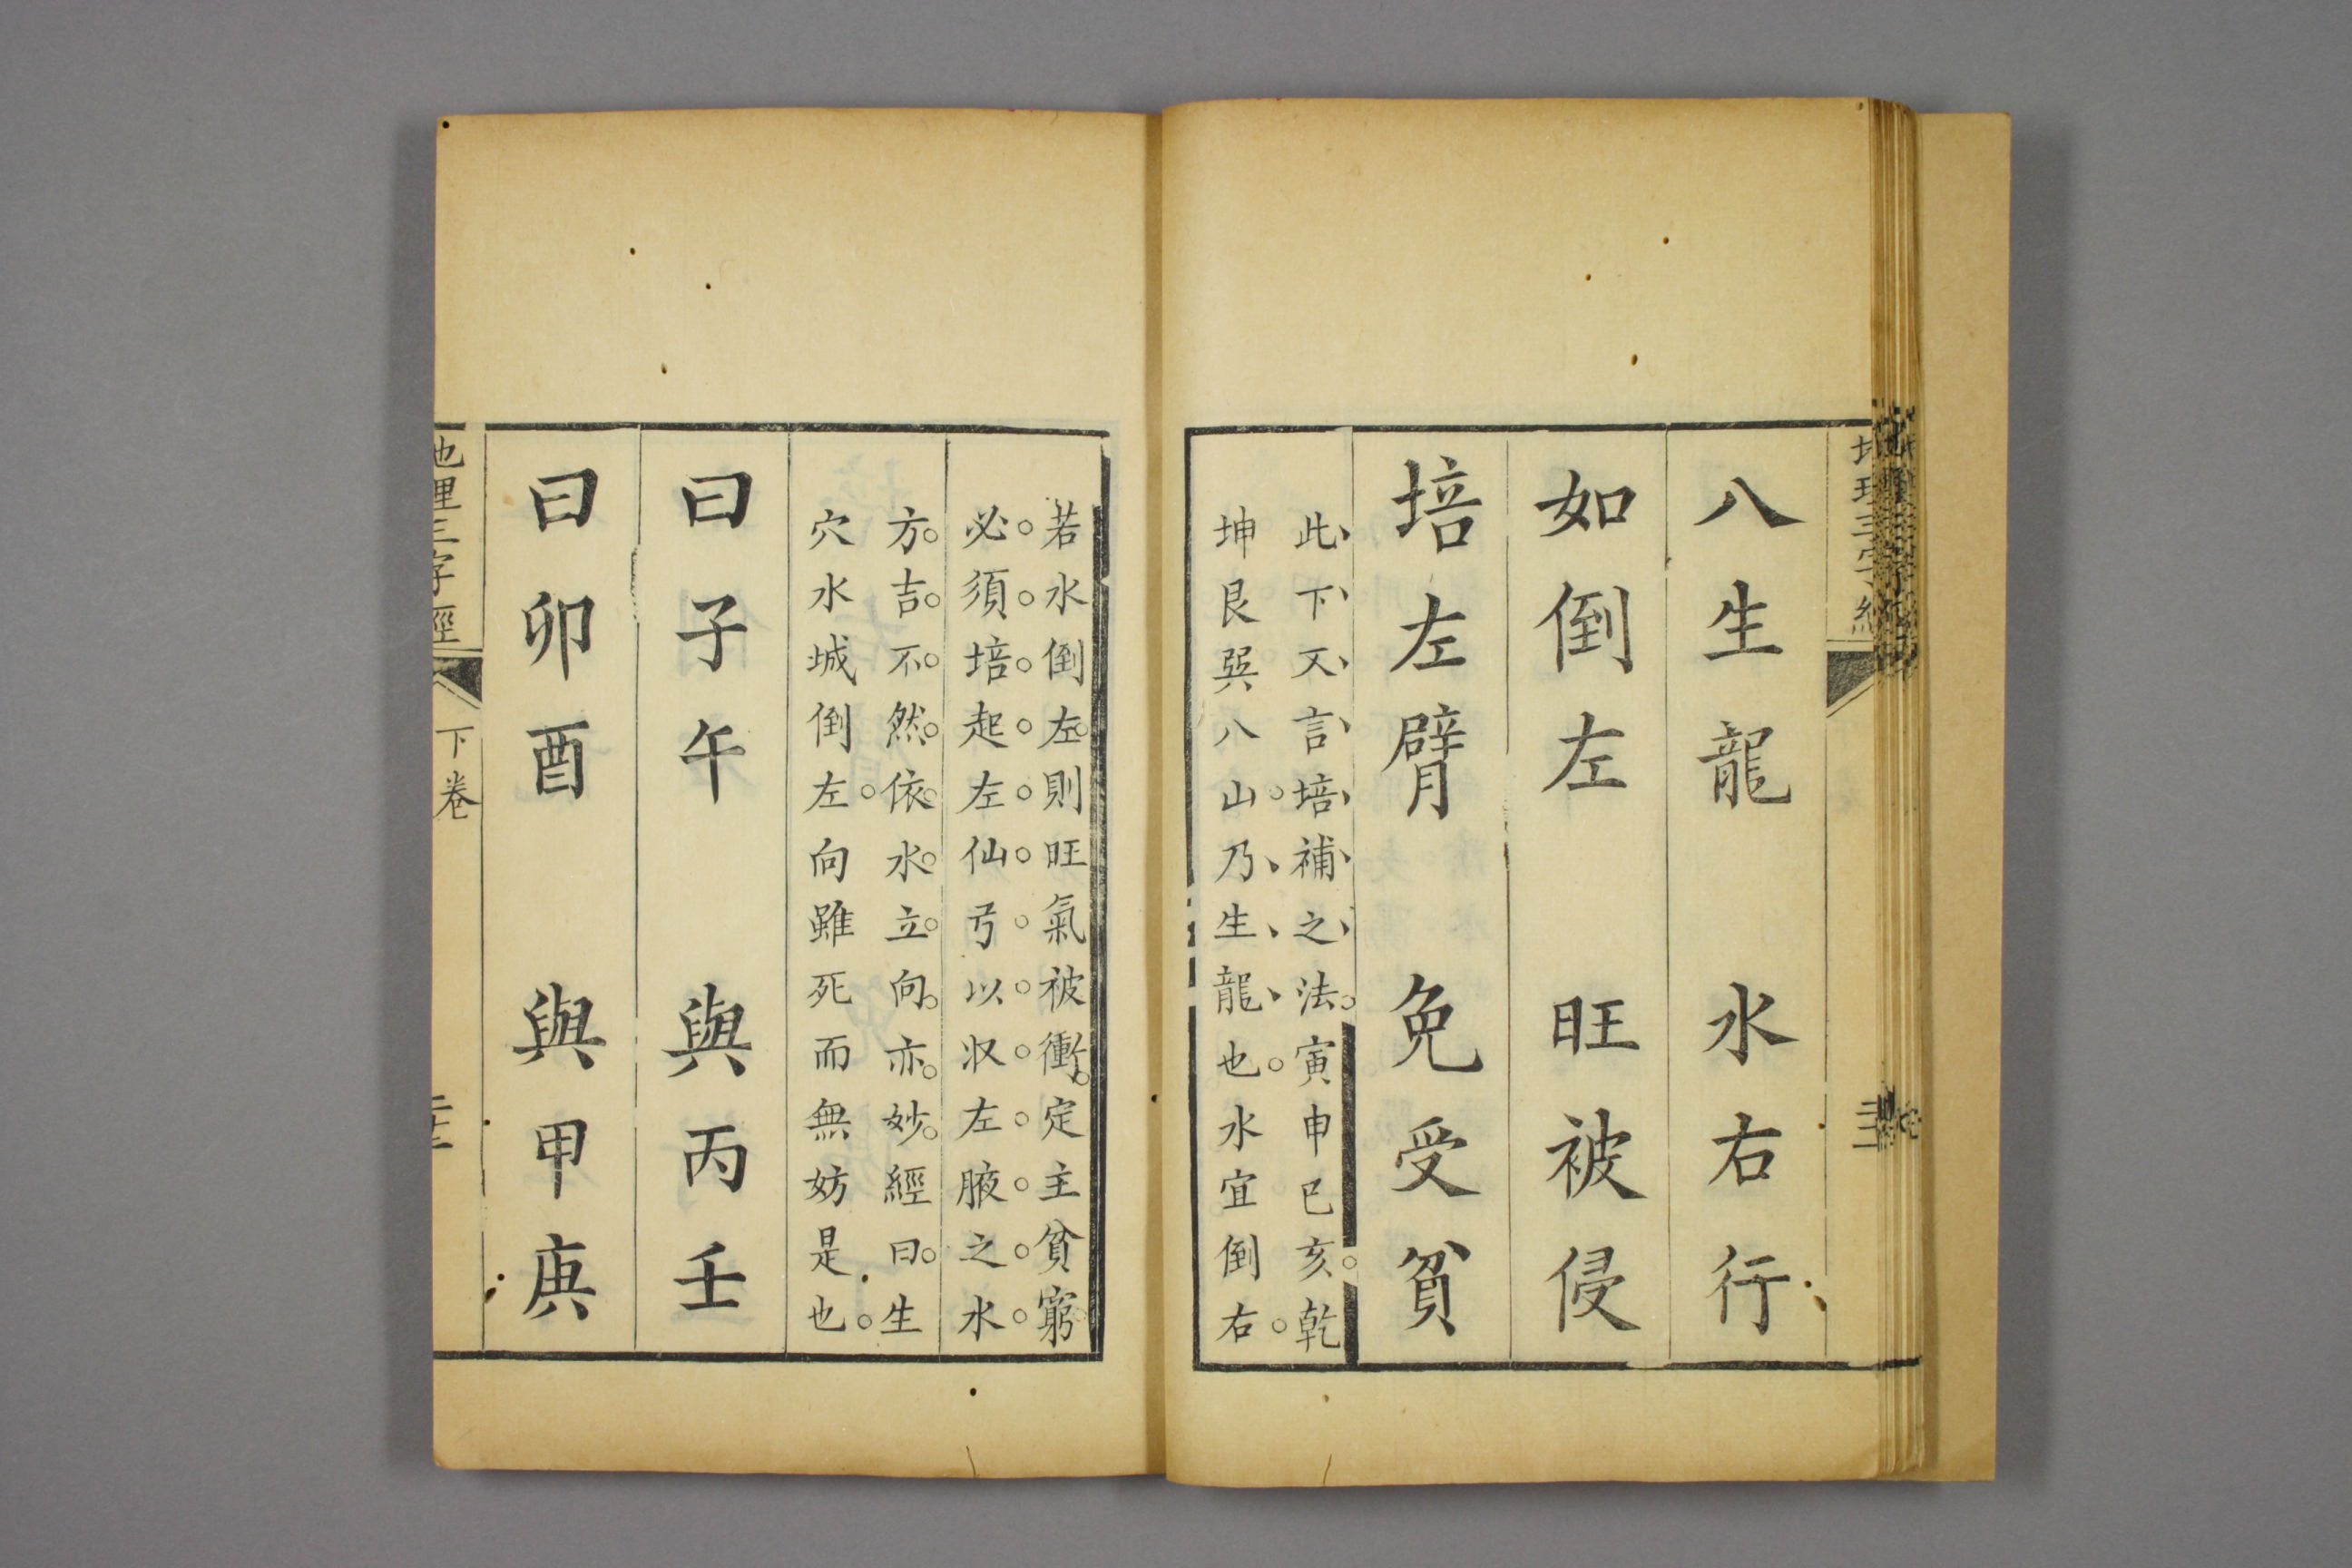 八生龍　水右行
如倒左　旺被侵
培左臂　免受貧
此下又言培補之法寅申巳亥乾
坤艮巽八山乃生龍也水宜倒右
若水倒左則旺氣被衝定主貧窮
必須培起左仙弓以收左腋之水
方吉不然依水立向亦妙經曰生
穴水城倒左向雖死而無妨是也
曰子午　與丙壬
曰卯酉　與甲庚
地理三字經
下卷